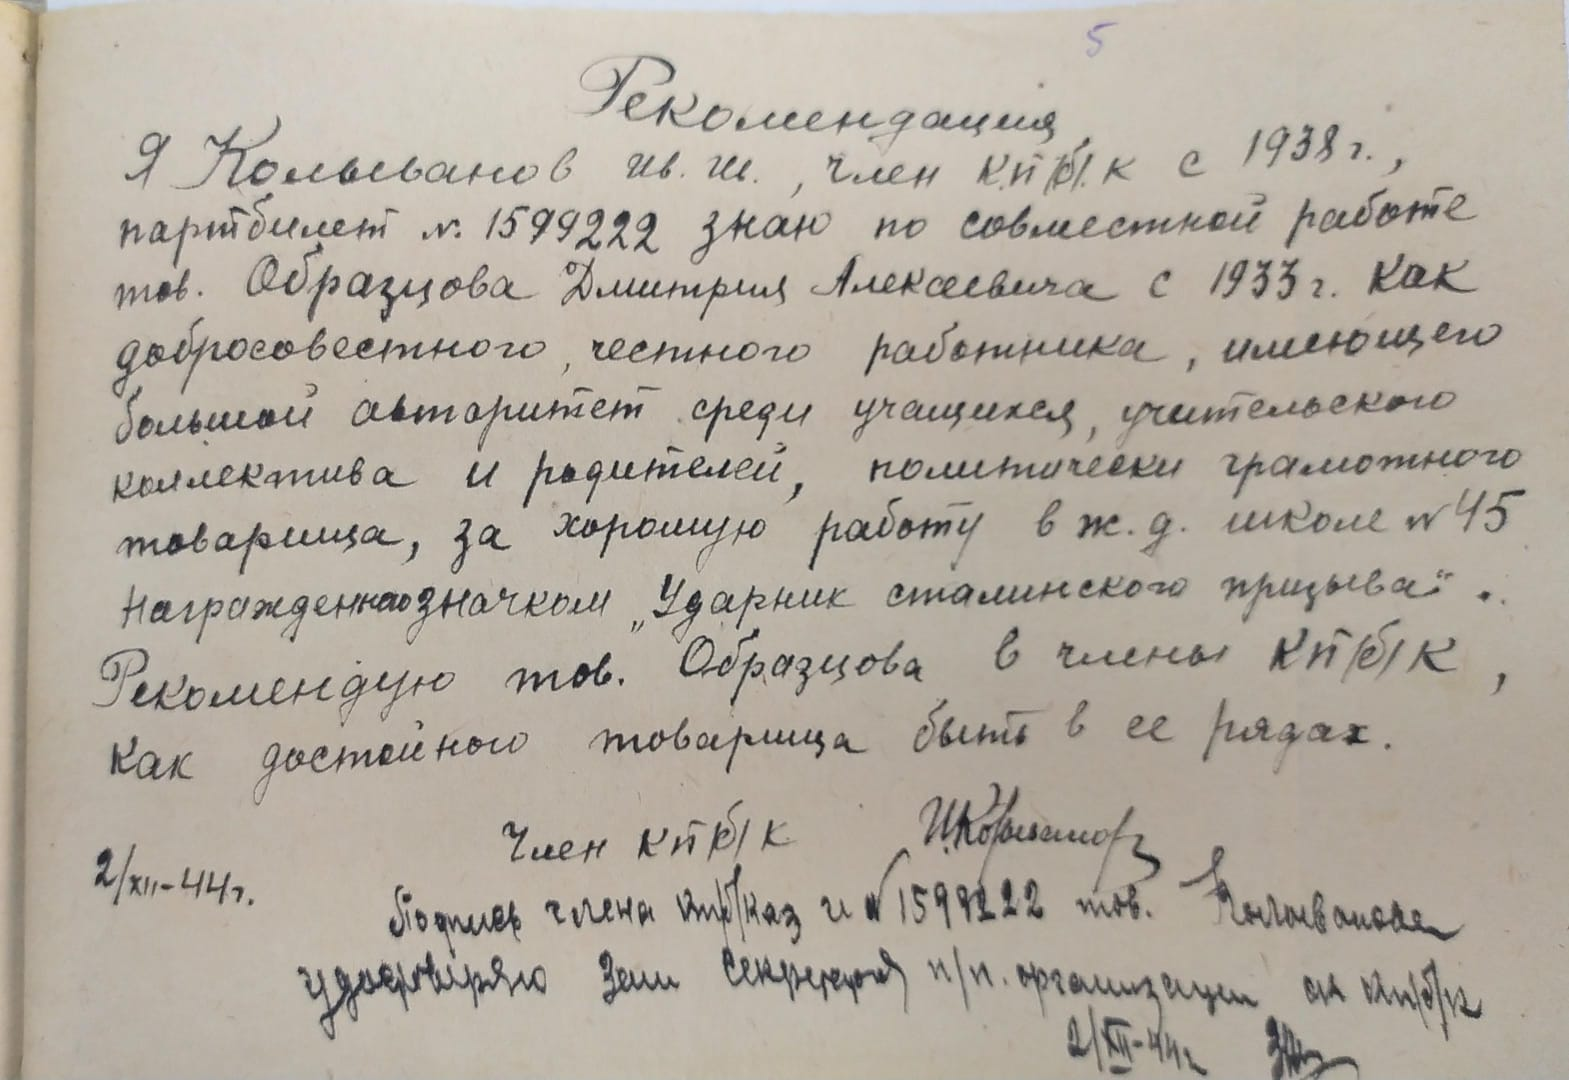 5
Рекомендация
Я Колыванов Ив. Ив., член КП/б/К с 1938 г.,
партбилет №. 1599222 знаю по совместной работе
тов. Образцова Дмитрия Алексеевича с 1933 г. как
добросовестного, честного работника, имеющего
большой авторитет среди учащихся, учительского
коллектива и родителей, политически грамотного
товарища, за хорошую работу в ж. д. школе № 45
награжденного значком „Ударник сталинского призыва".
Рекомендую тов. Образцова в члены КП/б/К,
как достойного товарища быть в ее рядах.
Член КП/б/К
2/XII-44г.
Подпись члена КП/б/Каз и № 1599222 тов. Колыванова
удостоверяю Зам секретаря п/п. организации КП/б/К
2/XII-44г